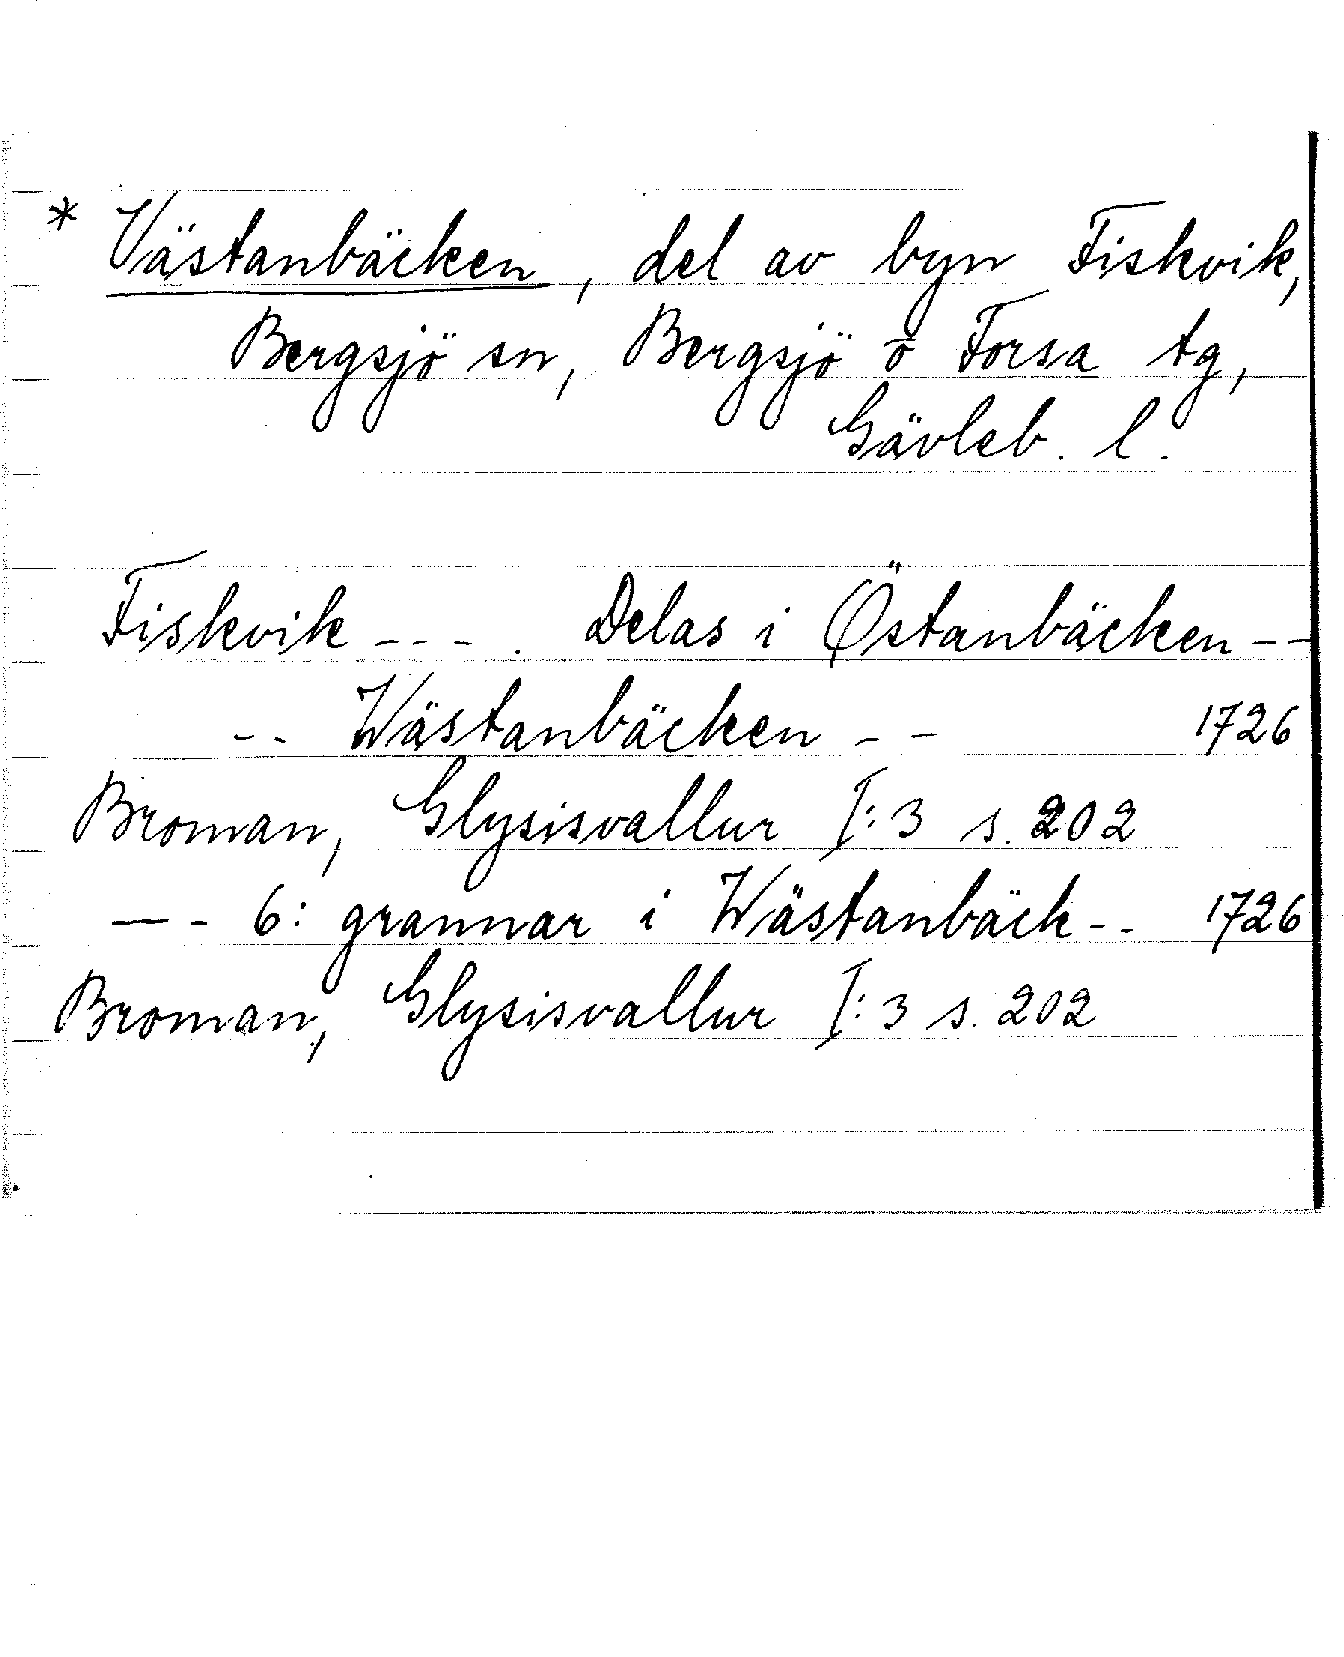 * Västanbäcken, del av byn Fiskvik,
Bergsjö sn, Bergsjö o Forsa tg,
Gävleb. l.
Fiskvik --- . Delas i Östanbäcken --
-- Wästanbäcken -- 1726
Broman, Glysisvallur I:3 s. 202
-- 6: grannar i Wästanbäck-- 1726
Broman, Glysisvallur I:3 s. 202